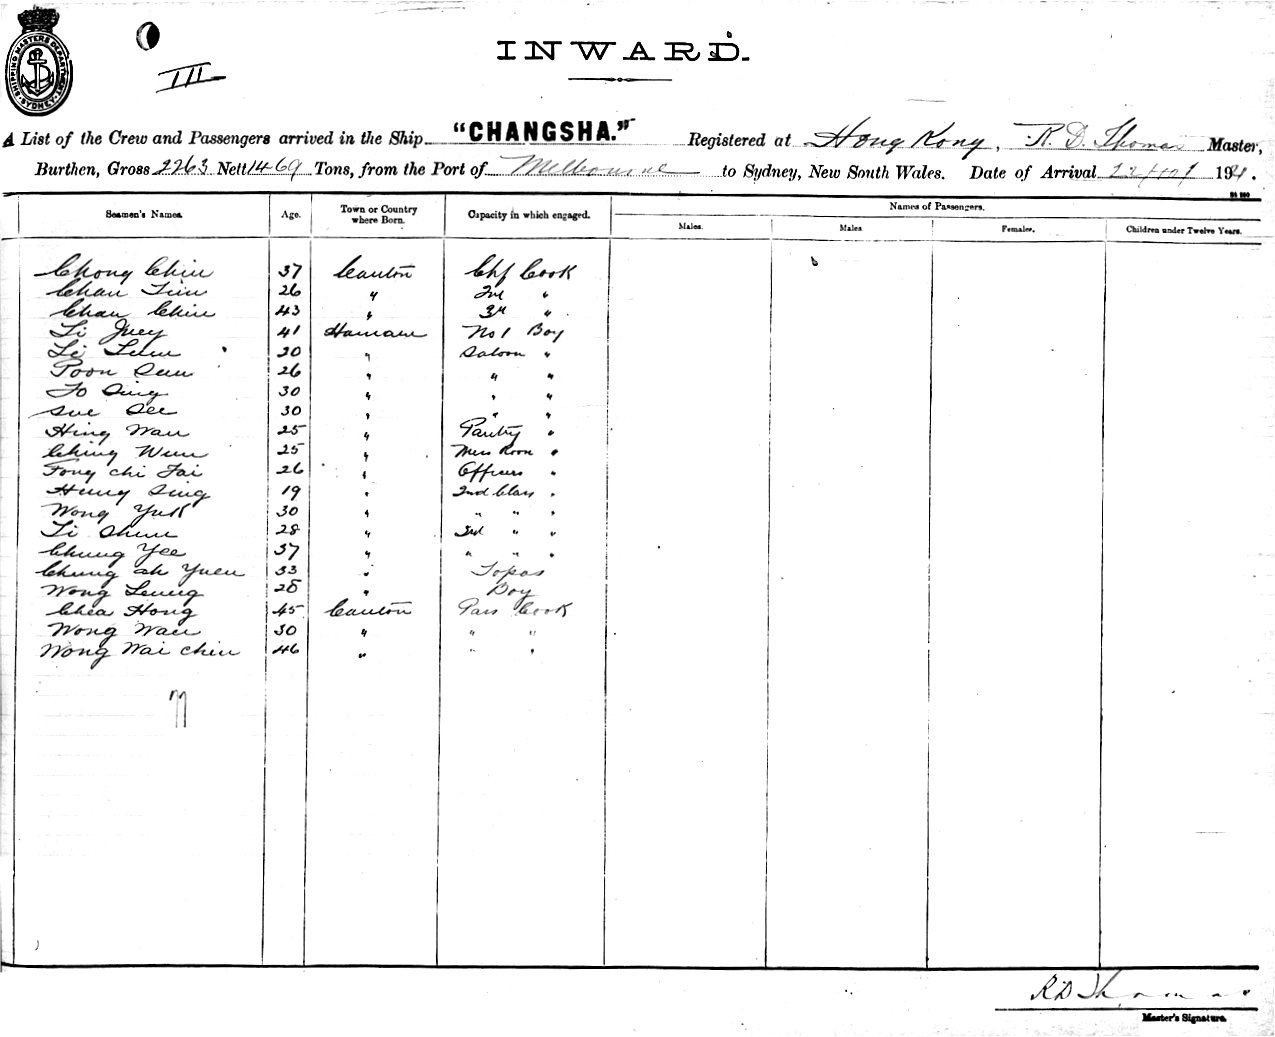 SHIPPING MASTER'S DEPARTMENT SYDNEY
III
INWARD.
A List of the Crew and Passengers arrived in the Ship "CHANGSHA." Registered at Hong Kong, R. D. Thomas Master,
Burthen, Gross 2263 Nett 1469 Tons, from the Port of Melbourne to Sydney, New South Wales. Date of Arrival 22/10/ 19
Seamen's Names. Age. Town or Country where Born. Capacity in which engaged. Names of Passengers.
Males. Males Females. Children under Twelve Years.
Chong Chin 37 Canton Chf Cook
Chan Tim 26 " 2nd "
Chan Chin 43 " 3rd "
Li Juey 41 Hainam No 1 Boy
Li Lum 20 " Saloon "
Poon Sau 26 " " "
To Sing 30 " " "
Sue See 30 " " "
Hing Wau 25 " Pantry "
Ching Wun 25 " Mess Room "
Fong Chi Tai 26 " Officers "
Hung Sing 19 " 2nd Class "
Wong Yuk 30 " " " "
Li Shun 28 " 3rd " "
Chung Yee 37 " " " "
Chung ah Yuen 33 " Topas
Wong Leung 28 " Boy
Chea Hong 45 Canton Pass Cook
Wong Wau 30 " " "
Wong Wai Chiu 46 " " "
R D Thomas
Master's Signature.